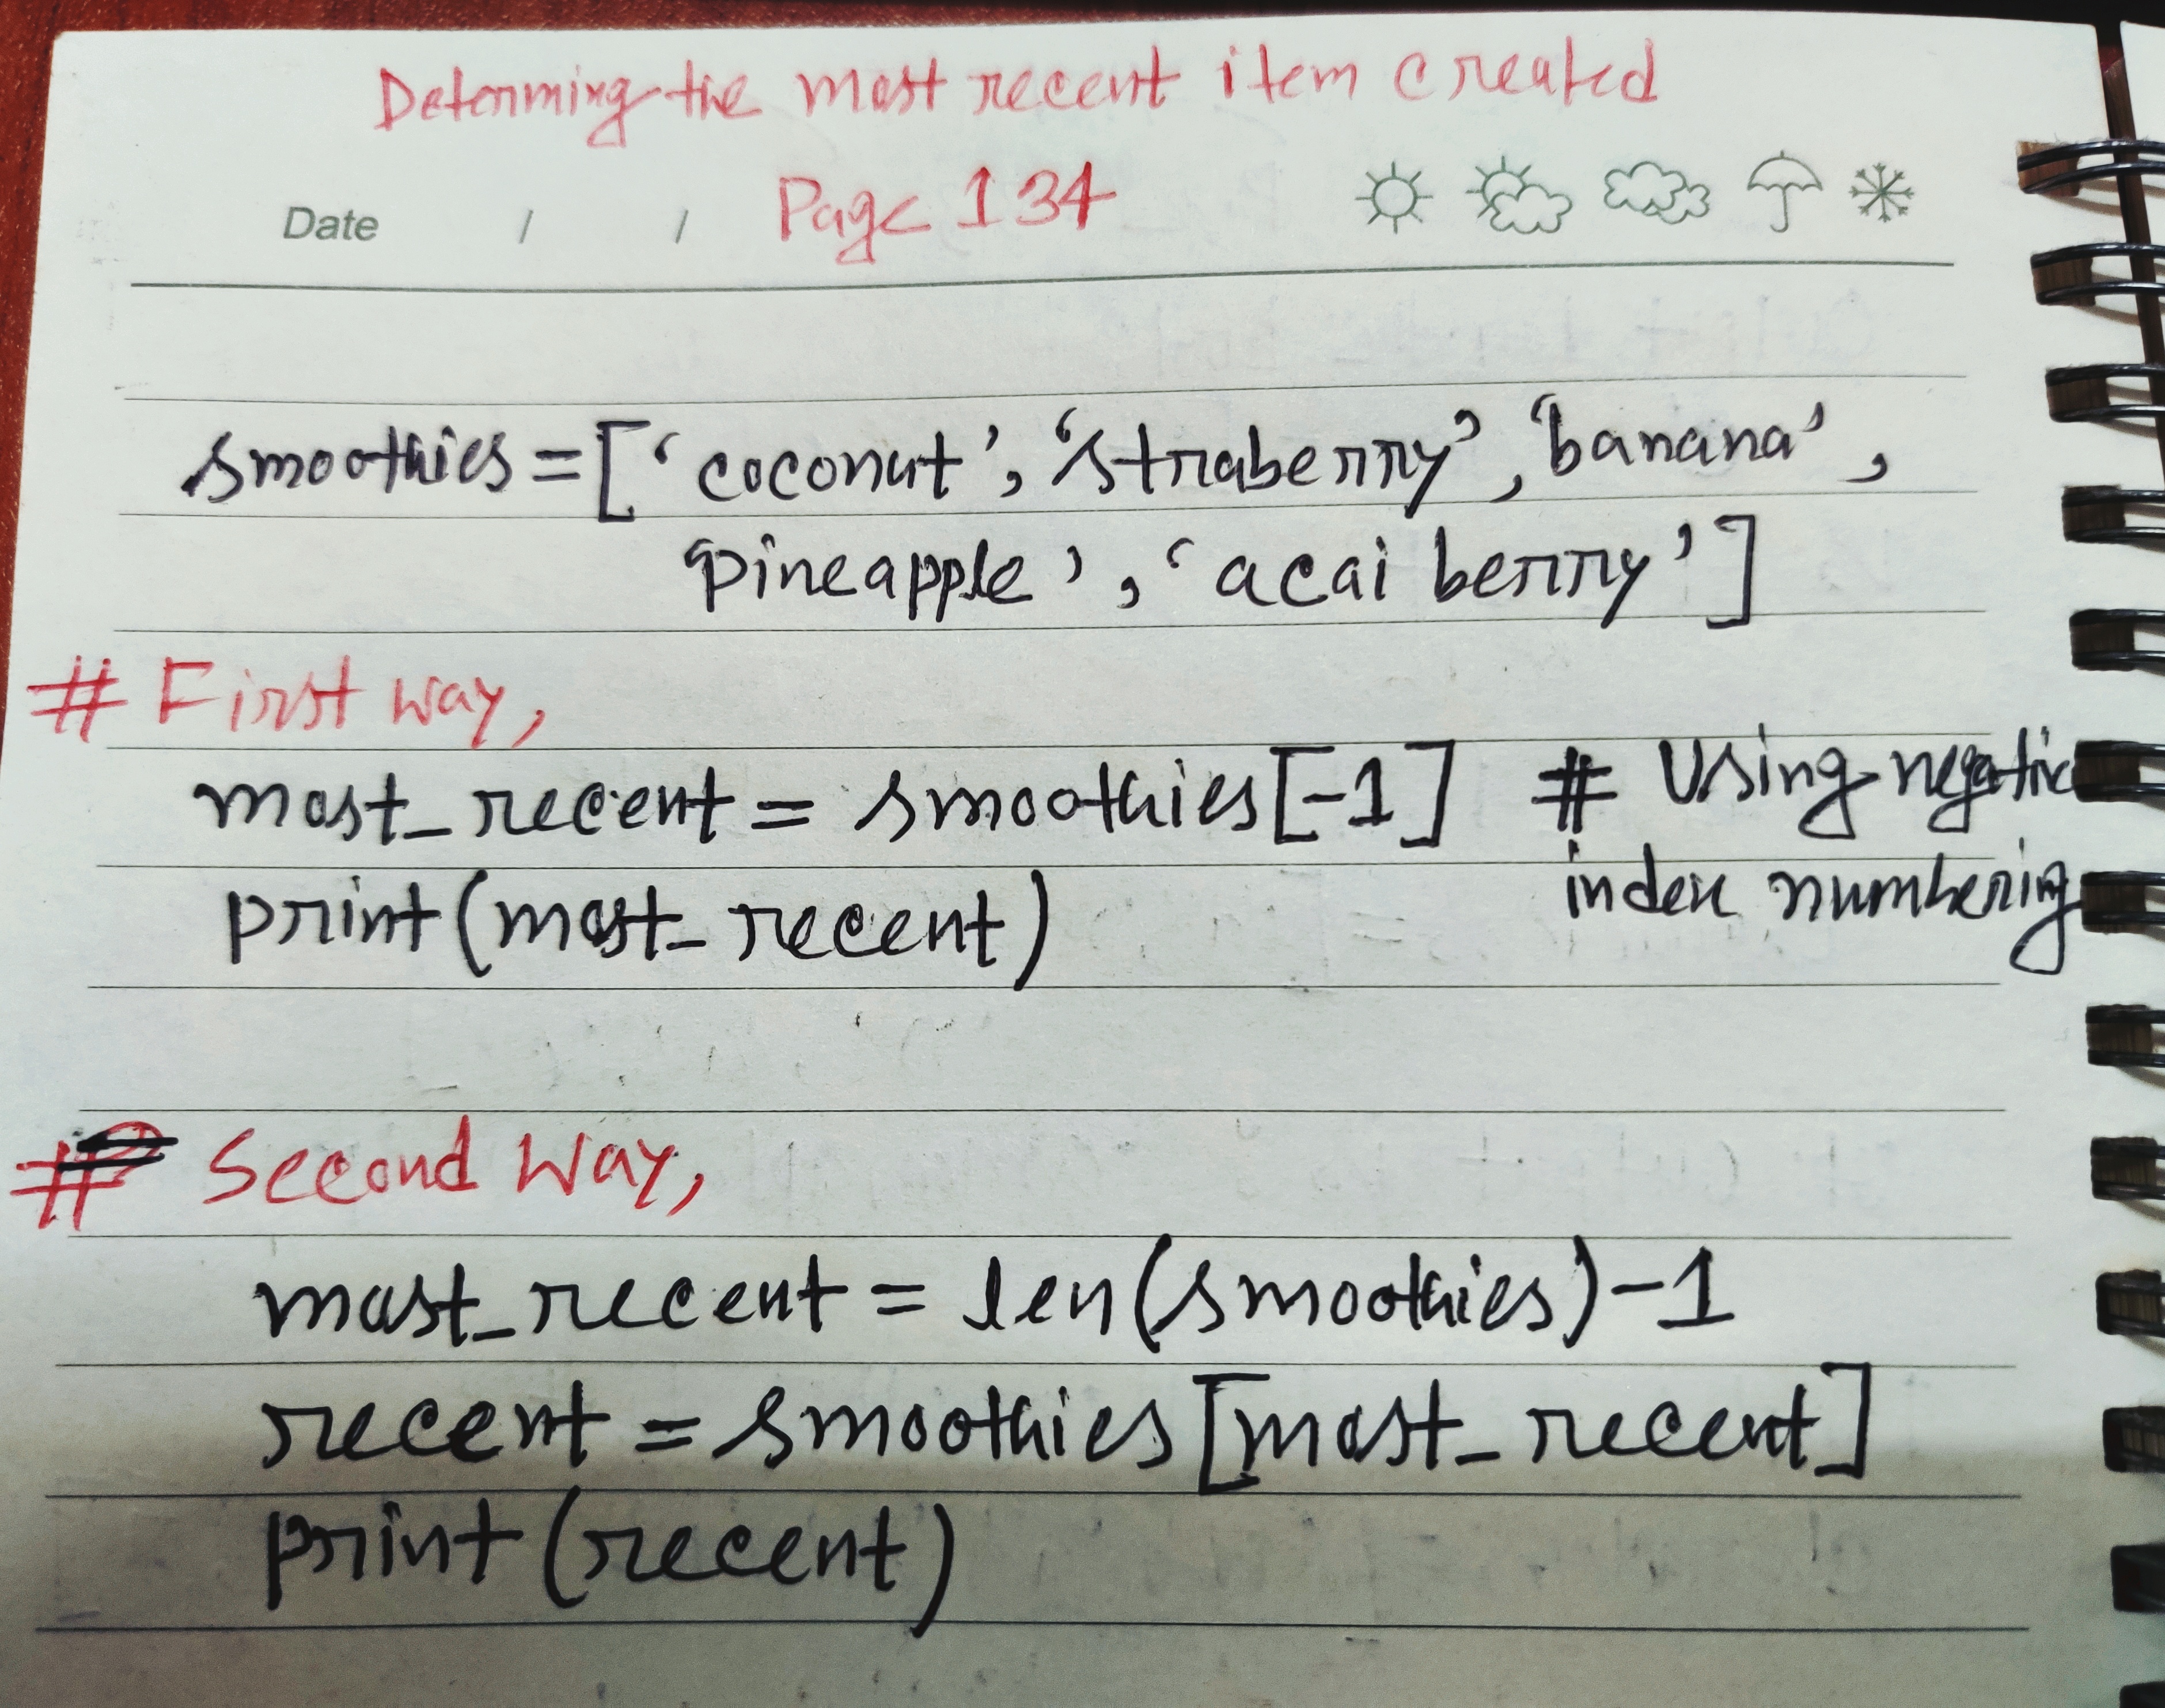 Determing the most recent item created
Date / / Page 134
smoothies = ['coconut', 'straberry', 'banana',
'pineapple', 'acai berry']
# First way,
most_recent = smoothies[-1] # Using negative
index numbering
print(most_recent)
# Second Way,
most_recent = len(smoothies)-1
recent = smoothies[most_recent]
print(recent)